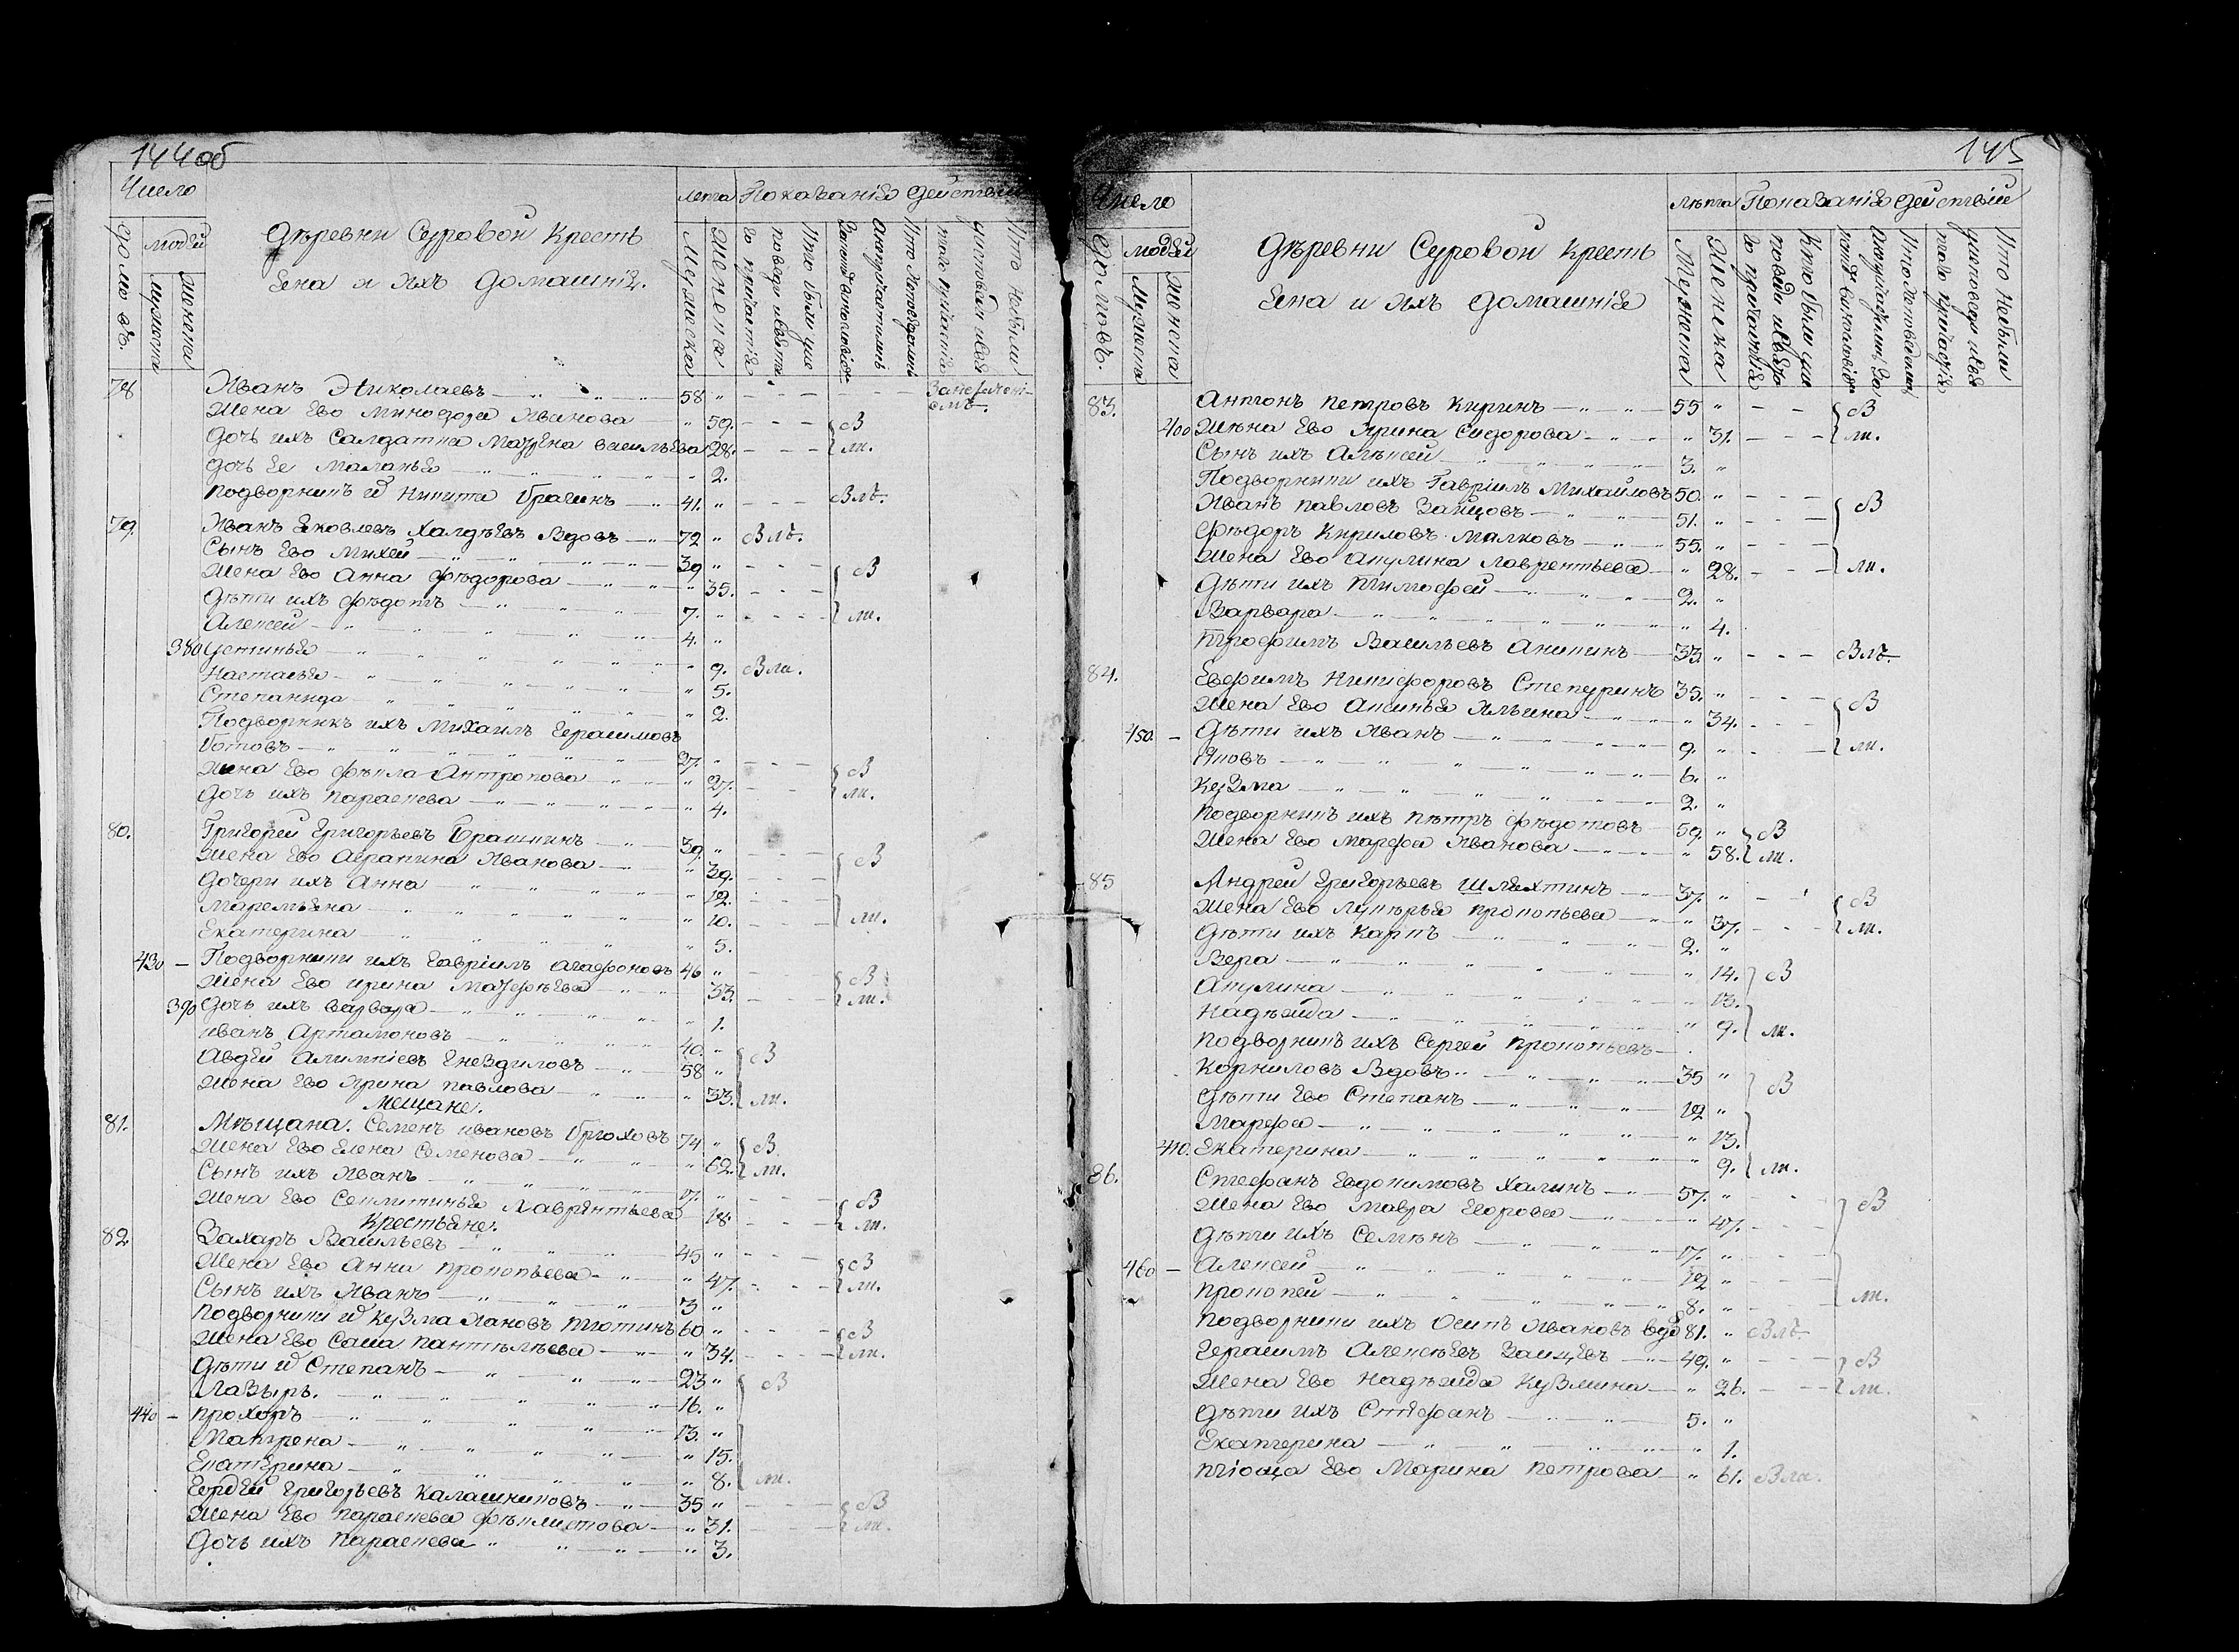 144об
Число
домовъ.
людей
мужеска
женска
Деревни Суровой Кресть
яна и ихъ домашнія.
лета
Мужеска
Женска
Показанія действій
78 Иванъ Николаевъ 58 "
Жена Ево Минодора Иванова " 59. В
Дочь ихъ Салдатка Матрена васильева 28. ли.
дочь Ее Маланья " 2.
подворникъ Никита Брагинъ 41. " В лѣ.
79. Иванъ Яковлевъ Халдѣевъ Вдовъ 72 " В лѣ.
Сынъ Ево Михей 39 "
Жена Ево Анна Фѣдорова " 35. В
Дѣти ихъ Фѣдотъ 7. " ли.
Алексей 4. "
380 Устинья " 9. В ли.
Настасья " 5.
Степанида " 2.
Подворникъ ихъ Михаилъ Герасимовъ
27. "
жена Ево Фѣкла Антропова " 27. В
дочь ихъ параскева " 4. ли.
80. Григорей Григорьевъ Брашкинъ 39. "
жена Ево Аграпина Иванова " 39. В
дочери ихъ Анна " 12.
Маремьяна " 10. ли.
Екатерина " 5.
430 Подворники ихъ Гавріилъ агафоновъ 46 "
жена Ево ирина Матфѣева 33. В
390 дочь ихъ варвара " 1. ли.
иванъ Артамоновъ 40. "
Авдей Алимпіевъ Гнездиловъ 58 " В
жена Ево Ирина павлова " 33. ли.
Мещане.
81. Мѣщана. Семенъ ивановъ Брюховъ 74 "
жена Ево Елена Семенова " 62. В ли.
Сынъ ихъ Иванъ 17. "
жена Ево Секлитинья Лаврентьева 18. В ли.
Крестьяне.
82 Захаръ Васильевъ 45 "
жена Ево Анна прокопьева " 47. В
Сынъ ихъ Иванъ 3 " ли.
подворники Кузма Ивановъ 60 "
жена Ево Саша пантелѣева " 34. В ли.
дѣти Степанъ 23 " В
Лазырь. 16. "
440 прохоръ 13. "
Матрена " 15.
Екатерина " 8. ли.
Гордей григорьевъ калашниковъ 35 "
жена Ево параскева Фѣклистова " 31. В ли.
дочь ихъ параскева " 3.
145
Число
домовъ.
людей
Мужеска
женска
Деревни Суровой кресть
яна и ихъ домашнія
лѣта
Мужеска
Женска
Показанія действій
83. Антонъ петровъ Киринъ 55 " В
400 Жена Ево Ирина Сидорова " 31. ли.
Сынъ ихъ Алексей 3. "
Подворники ихъ Гавріилъ Михайловъ 50. "
Иванъ павловъ Зайцовъ 51. " В
Фѣдоръ Кириловъ Малковъ 55. "
жена Ево Акулина лаврентьева " 28. ли.
Дѣти ихъ Тимофей 2. "
Варвара " 4.
Трофимъ Васильевъ Аникинъ 33. " В лѣ.
84. Евфимъ Никифоровъ Степуринъ 35. "
жена Ево Аксинья Ильина " 34. В
450 Дѣти ихъ Иванъ 9. " ли.
Яковъ 6. "
кузма 2. "
подворникъ ихъ пѣтръ фѣдотовъ 59. " В
жена Ево марфа Иванова " 58. ли.
85 Андрей Григорьевъ Шляхтинъ 37. " В
жена Ево Лукерья прокопьева " 37. ли.
дѣти ихъ карпъ 2. "
Вера " 14. В
Акулина " 13.
Надѣжда " 9. ли.
подворникъ ихъ Сергей прокопьевъ
корниловъ Вдовъ 35 " В
дѣти Ево Степанъ 12 "
Марфа " 13.
410. Екатерина " 9. ли.
86. Стефанъ Евдокимовъ Халинъ 57. "
жена Ево Мавра Егорова " 47. В
дѣти ихъ Семѣнъ 17. "
460 Алексей 12 "
прокопей 8. " ли.
подворники ихъ Осипъ Ивановъ вдо 81. " В лѣ.
Герасимъ Алексѣевъ Зайцевъ 49. " В
жена Ево надѣжда Кузмина " 26. ли.
дѣти ихъ Стефанъ 5. "
Екатерина " 1.
тіоща Ево Марина петрова " 61. В ли.